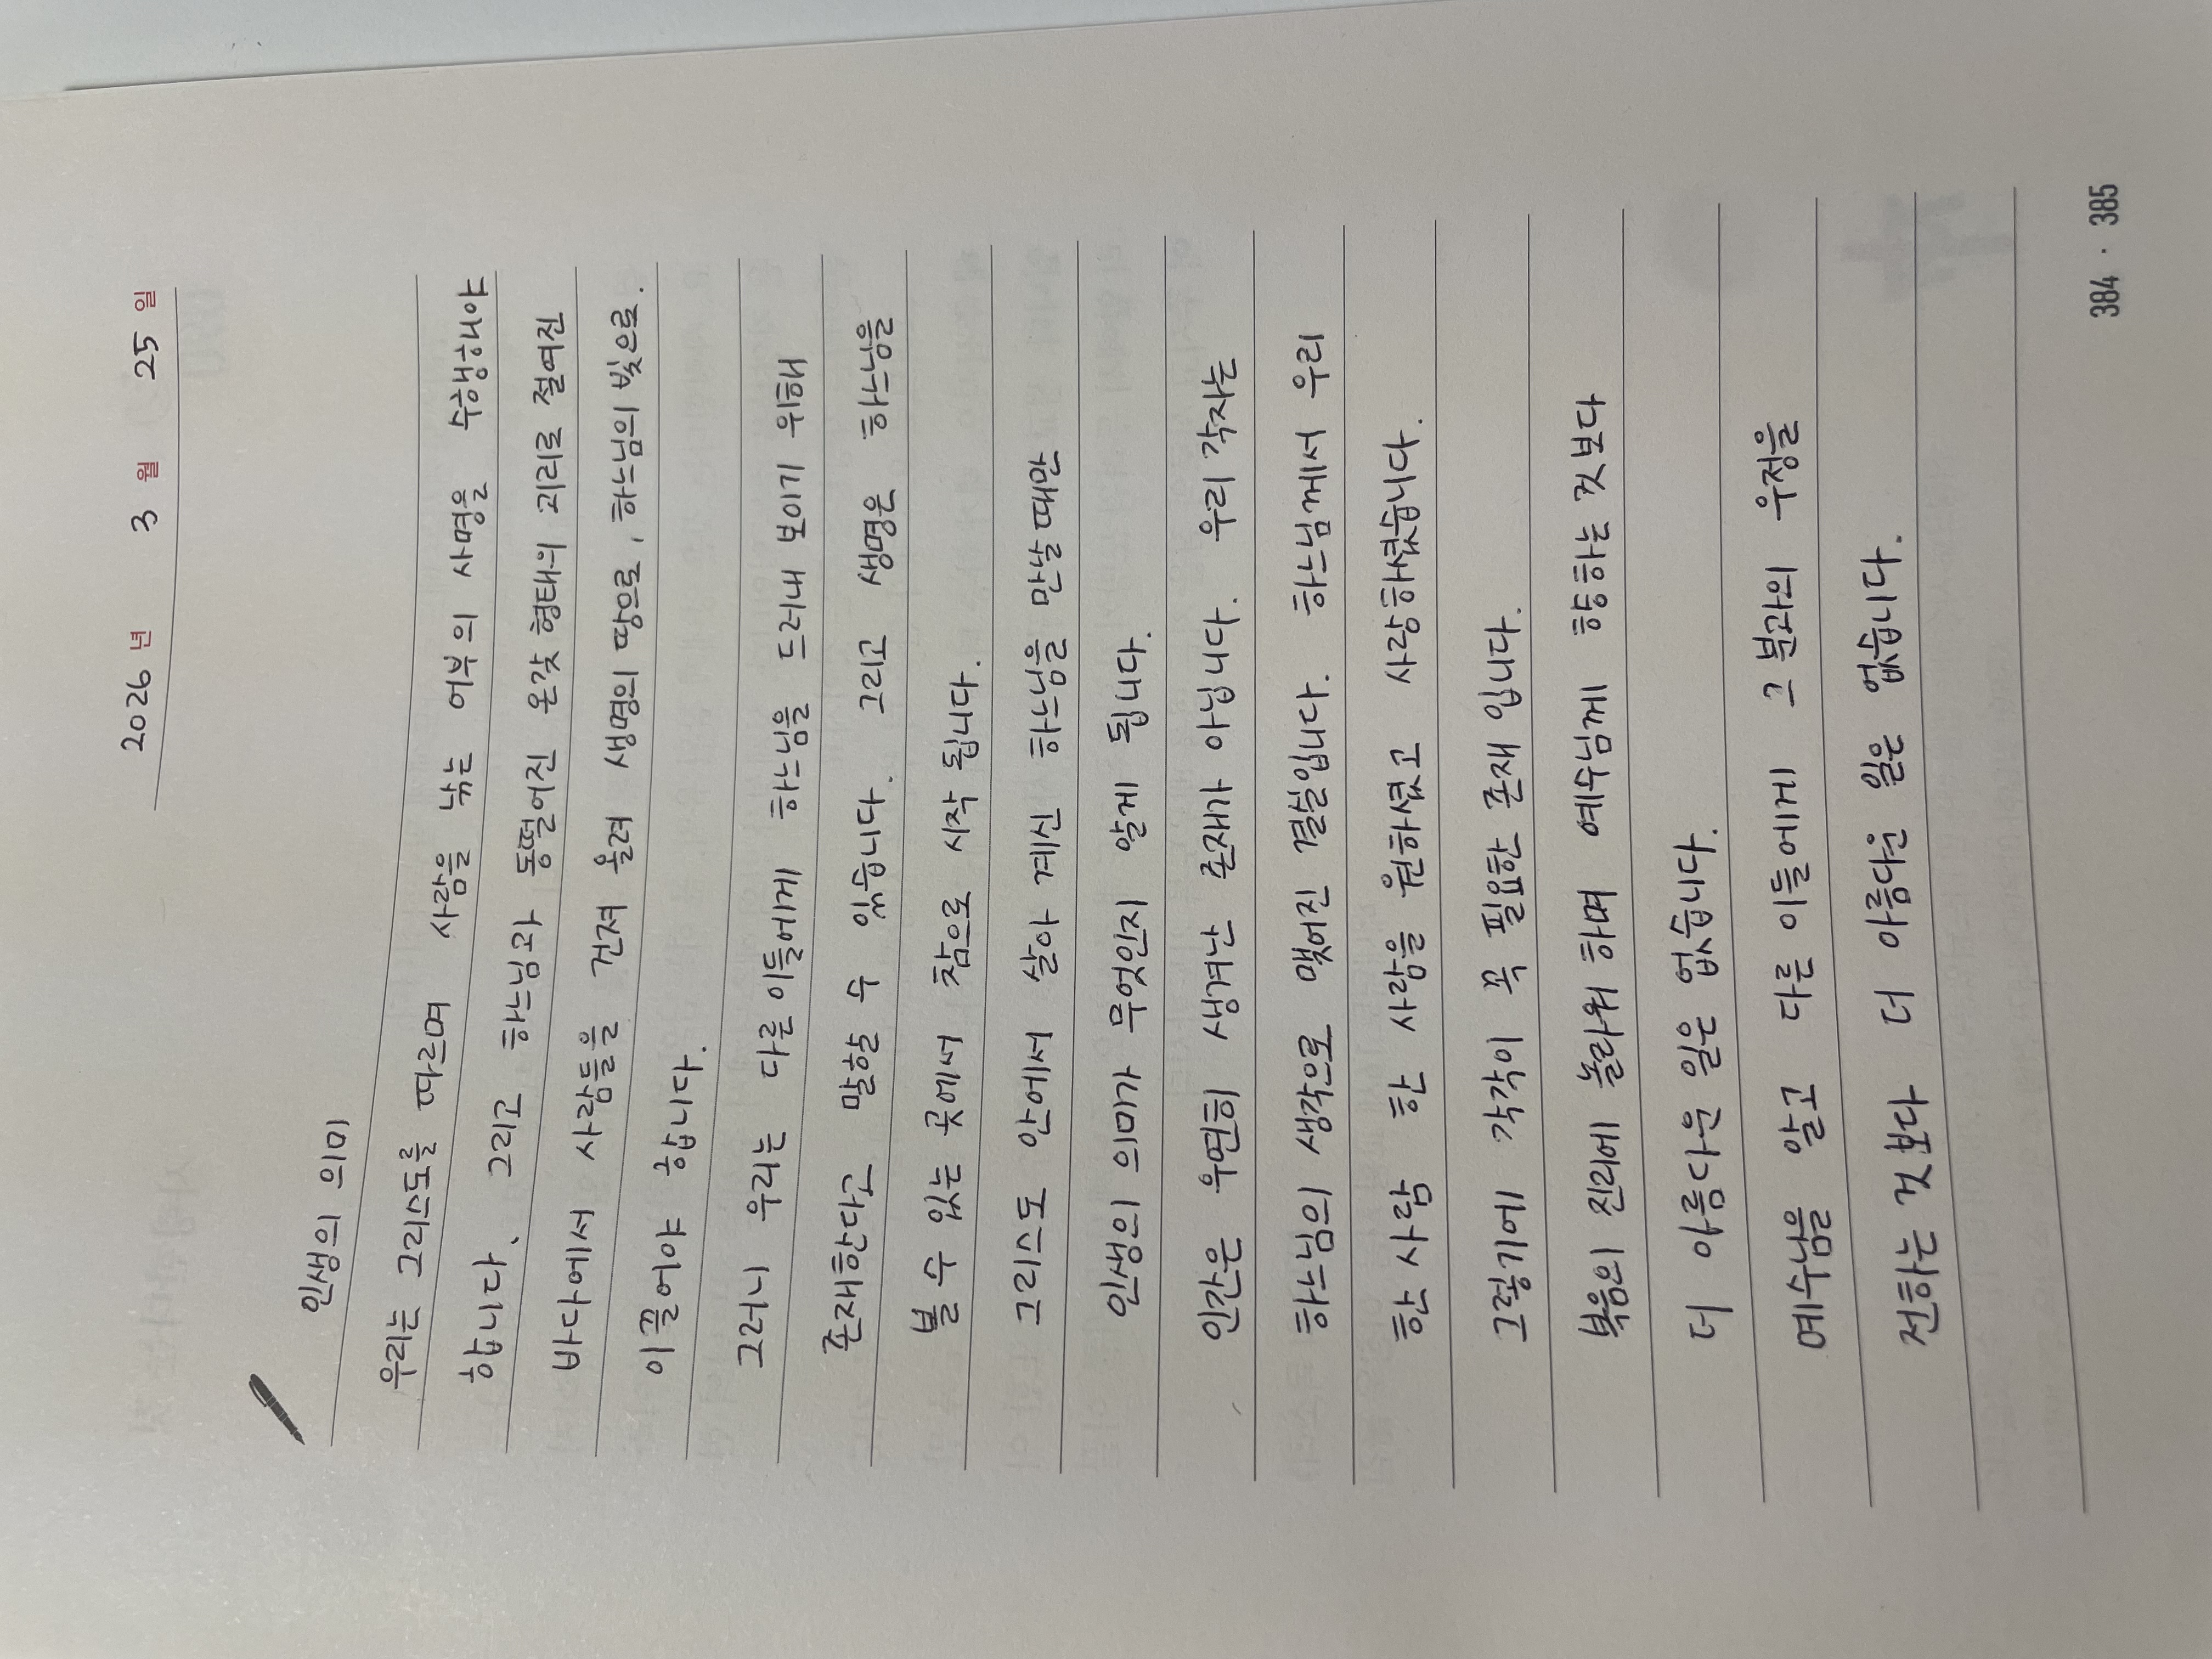 2026 년 3 월 25 일
인생의 의미
우리는 그리스도를 따르며 사람을 낚는 어부의 사명을 수행해야
합니다. 그리고 하느님과 동떨어진 온갖 형태의 괴리로 절여진
바다에서 사람들을 건져 올려 생명의 땅으로, 하느님의 빛으로.
이끌어야 합니다.
그러니 우리는 다른 이들에게 하느님을 드러내 보이기 위해
존재한다고 말할 수 있습니다. 그리고 생명은 하느님을
볼 수 있는 곳에서 참으로 시작 됩니다.
그리스도 안에서 살아 계신 하느님을 만날 때만
인생의 의미가 무엇인지 알게 됩니다.
인간은 우연히 생겨난 존재가 아닙니다. 우리 각자는
하느님의 생각으로 맺어진 결실입니다. 하느님께서 우리
한 사람 한 사람을 원하셨고 사랑하셨습니다.
그렇기에 각각이 꼭 필요한 존재 입니다.
복음의 진리에 놀라워 하며 예수님께 향하는 것 보다
더 아름다운 일은 없습니다.
예수님을 알고 다른 이들에게 그 분과의 우정을
전하는 것 보다 더 아름다운 일은 없습니다.
384 · 385